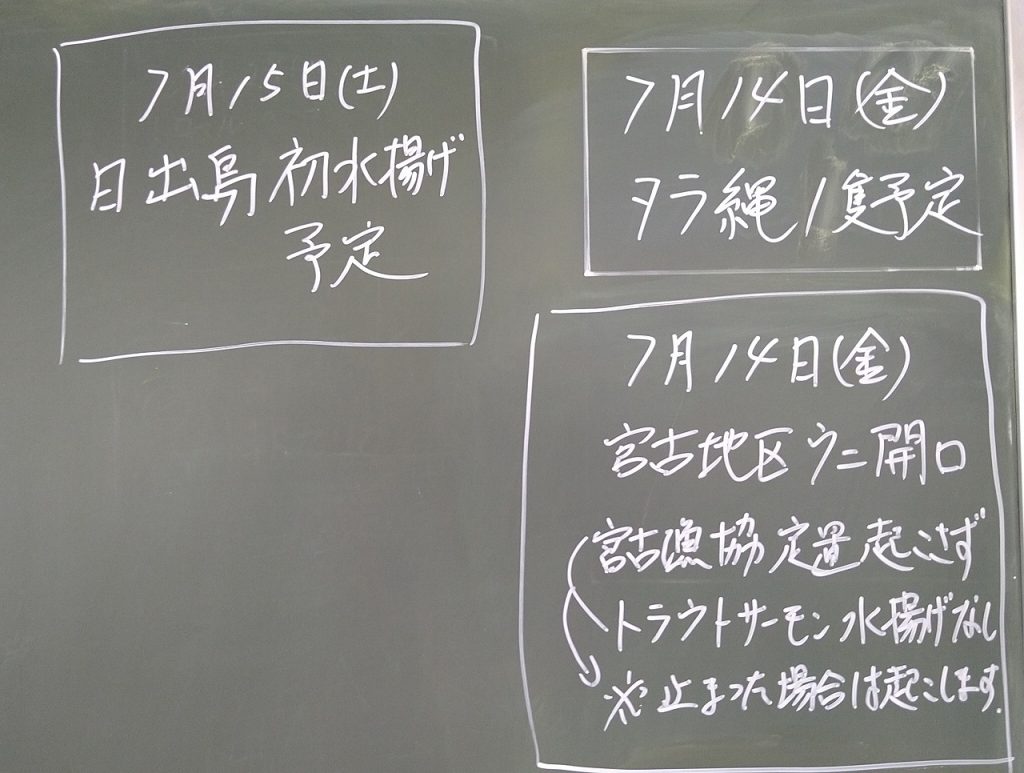 7月15日(土)
日出島初水揚げ
予定
7月14日(金)
タラ縄1隻予定
7月14日(金)
宮古地区ウニ開口
宮古漁協定置起こさず
トラウトサーモン水揚げなし
※止まった場合は起こします.